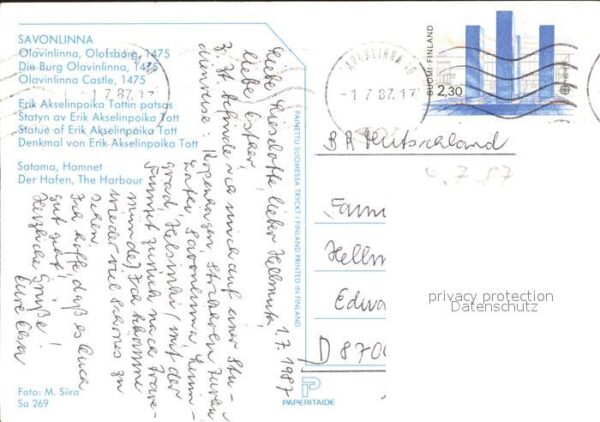 SAVONLINNA
Olavinlinna, Olofsborg, 1475
Die Burg Olavinlinna, 1475
Olavinlinna Castle, 1475
Erik Akselinpoika Tottin patsas
Statyn av Erik Akselinpoika Tott
Statue of Erik Akselinpoika Tott
Denkmal von Erik Akselinpoika Tott
Satama, Hamnet
Der Hafen, The Harbour
Foto: M. Siira
Sa 269
PAINETTU SUOMESSA TRYCKT I FINLAND PRINTED IN FINLAND
PAPERITAIDE
1.7.1987
Liebe Lieselotte, lieber Hellmut,
liebe Esther,
z. Zt. befinde ich mich auf einer Stu-
dienreise: Kopenhagen, Stockholm, Turku
Savonlinna, Lenin-
grad, Helsinki (mit der
Finnjet zurück nach Trave-
münde) Ich bekomme
wieder viel Schönes zu
sehen.
Ich hoffe, daß es Euch
gut geht!
Herzliche Grüße!
Eure
SAVONLINNA 10
-1.7.87.17
SUOMI FINLAND
2,30
BR Deutschland
4.7.87
Fami
Hellm
Edwa
D 8700
privacy protection
Datenschutz